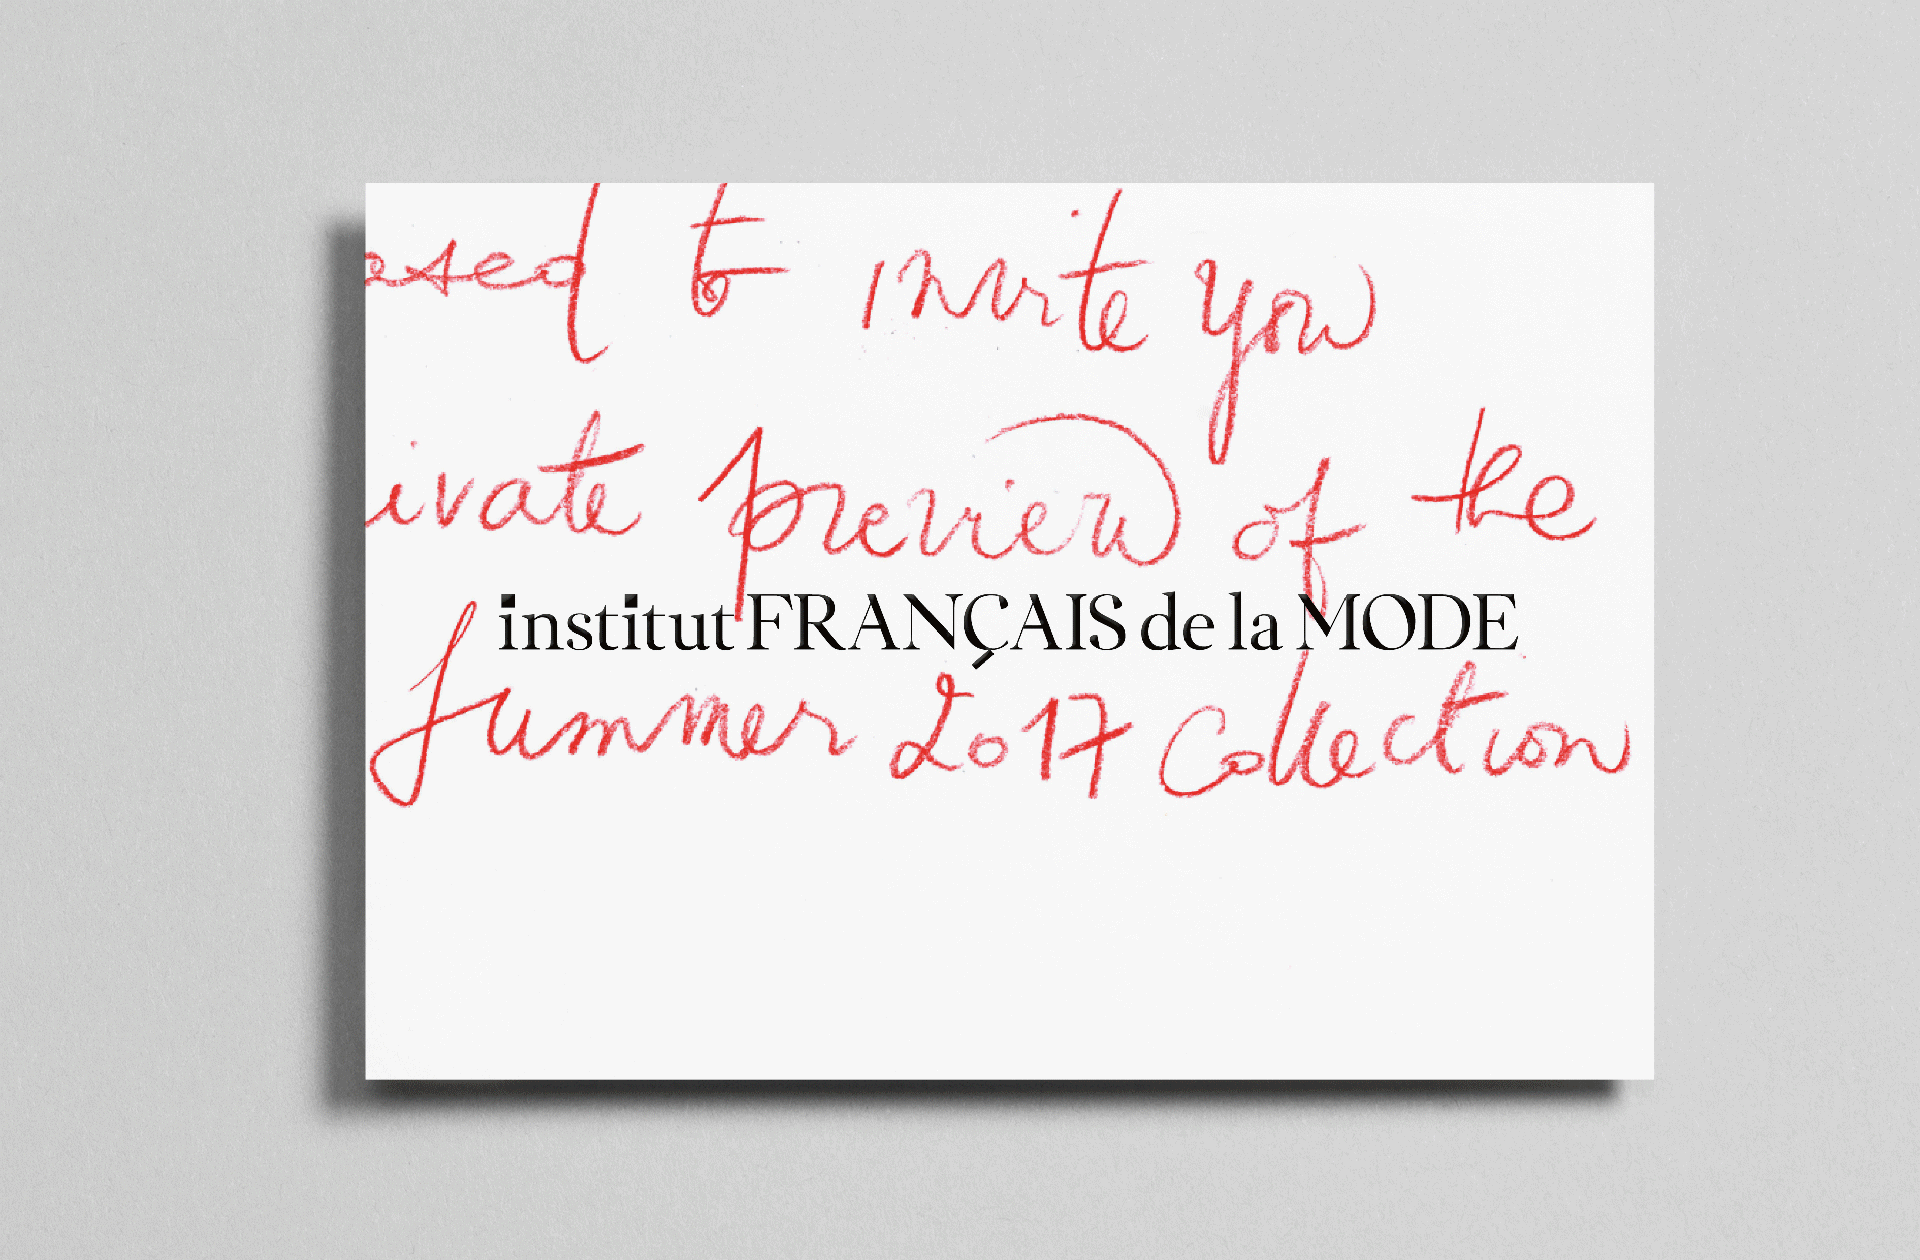 ased to invite you
ivate preview of the
institut FRANÇAIS de la MODE
Summer 2017 Collection